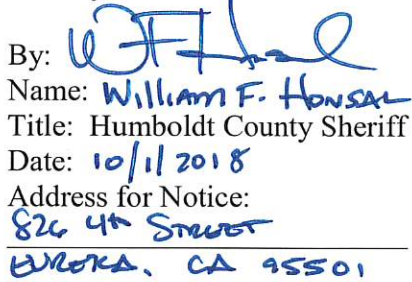 By:
Name: William F. Honsal
Title: Humboldt County Sheriff
Date: 10/1/2018
Address for Notice:
826 4th Street
EUREKA, CA 95501